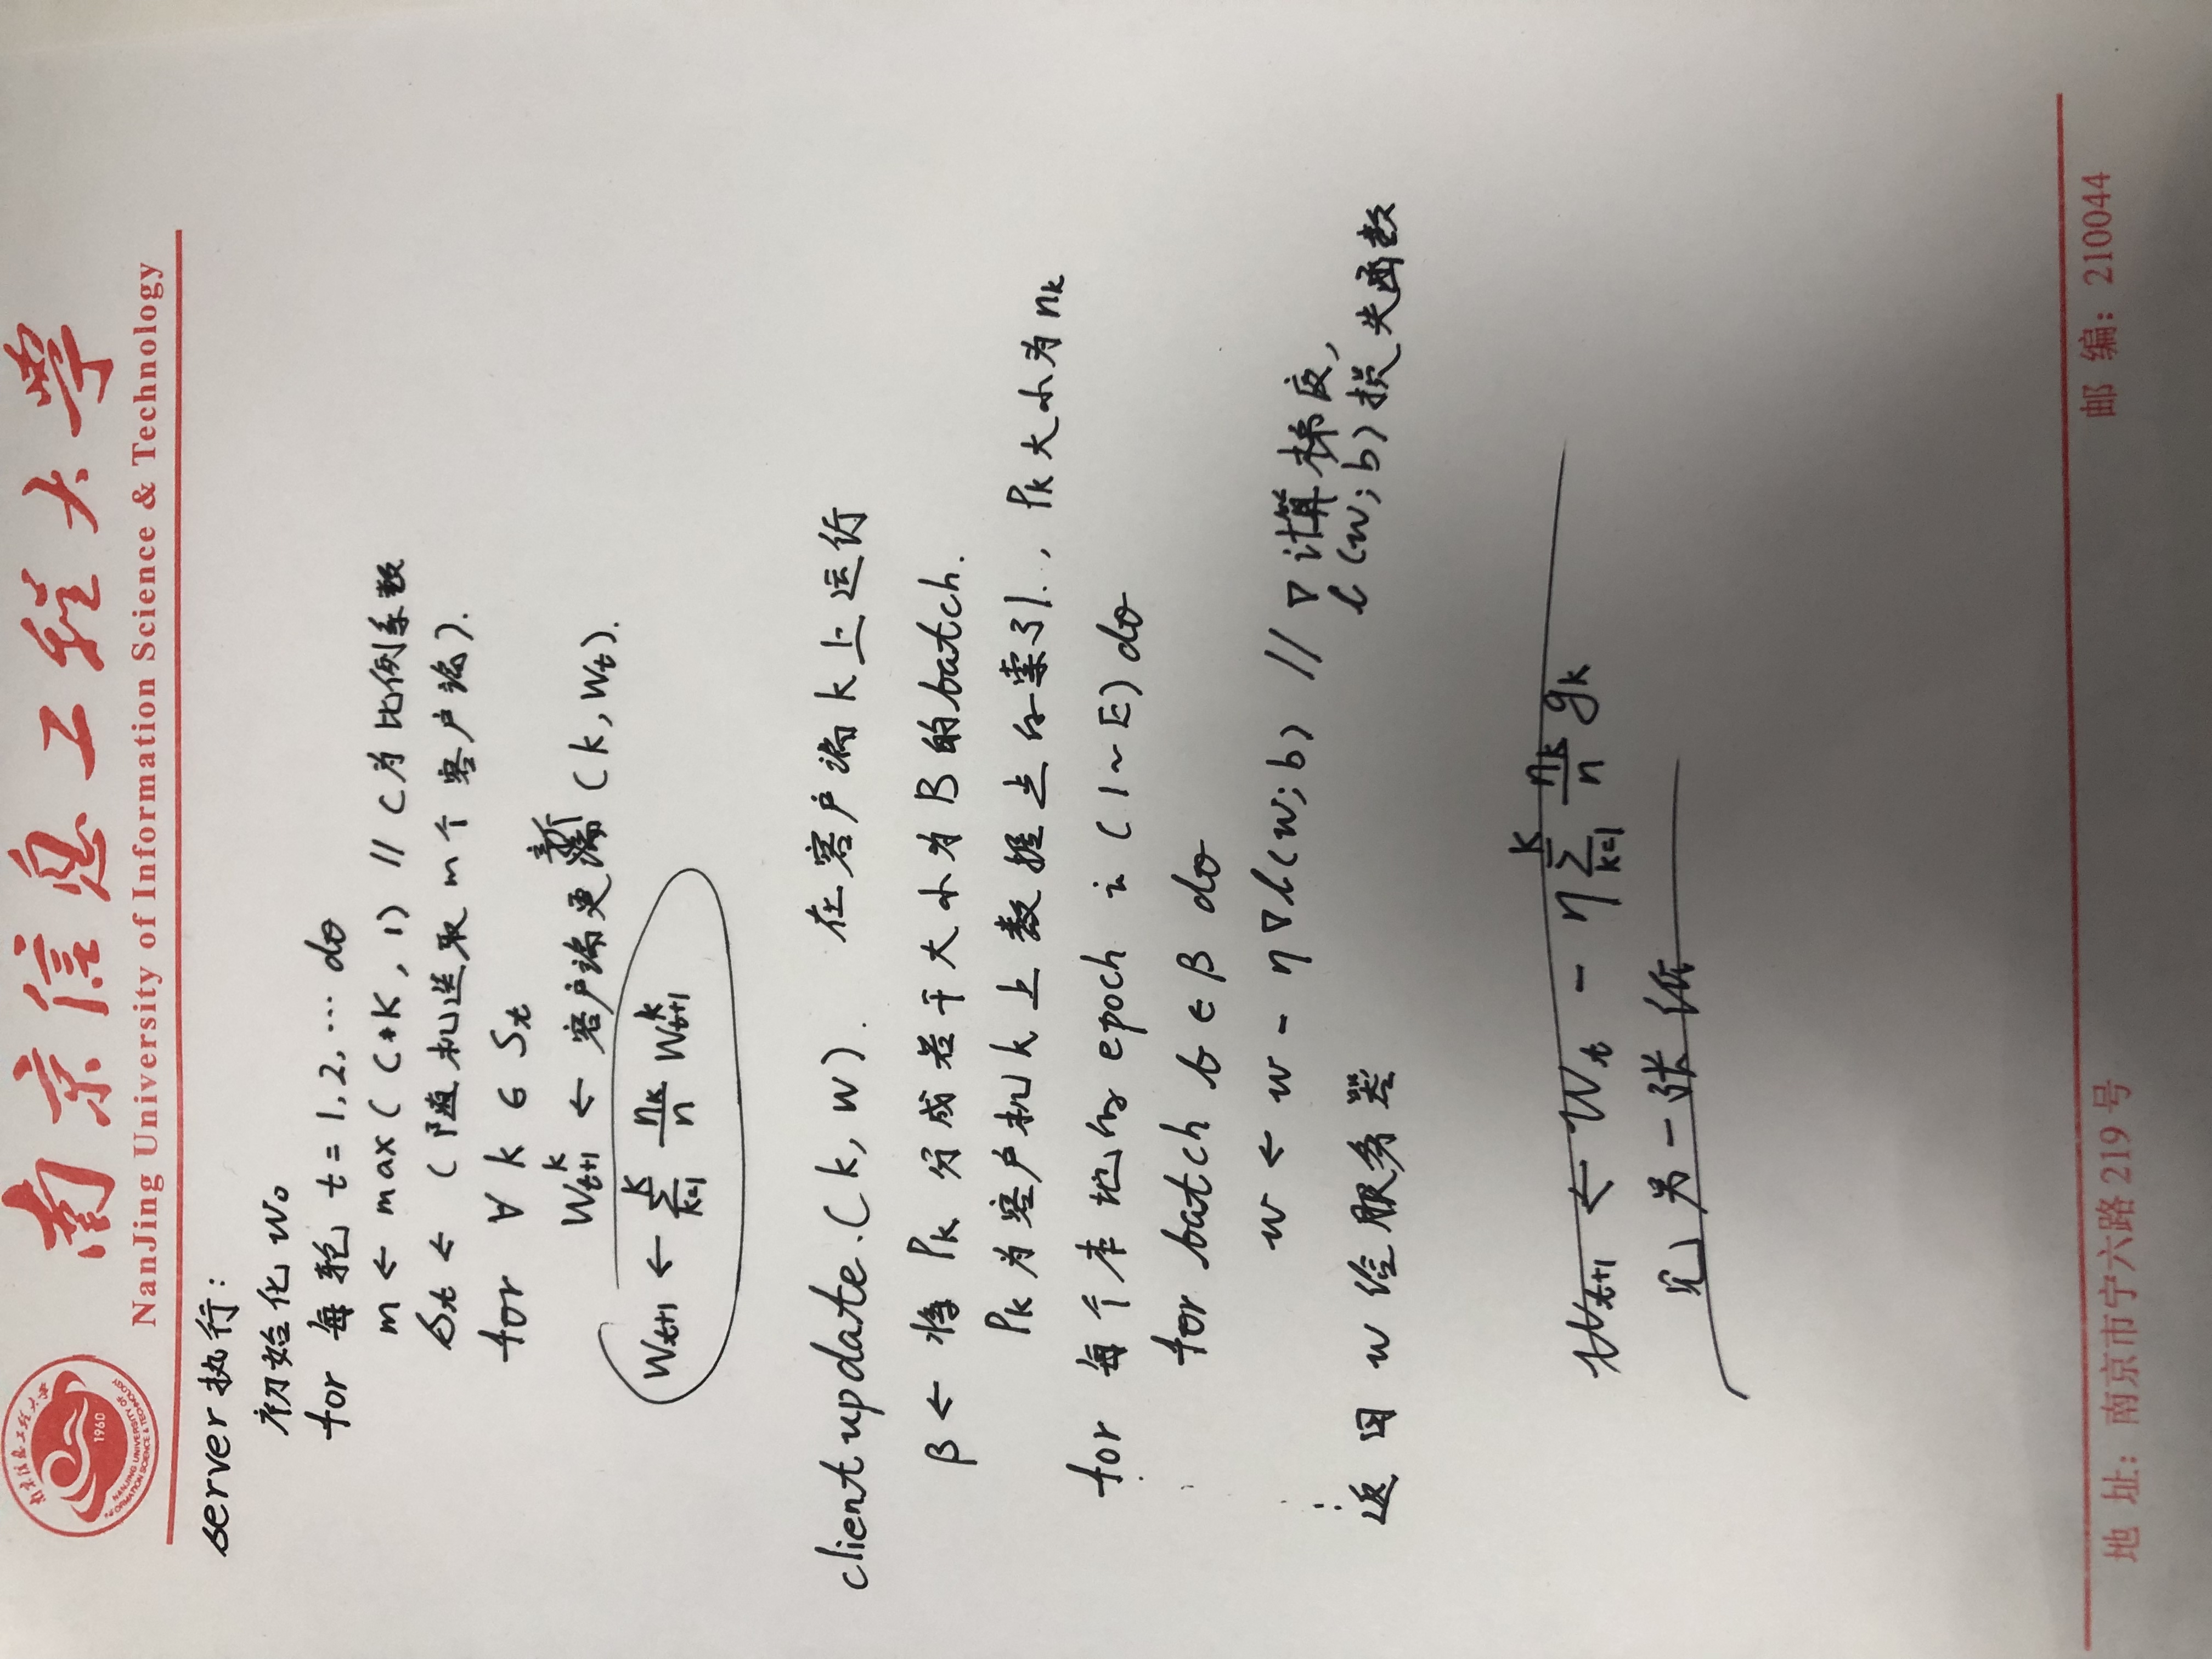 南京信息工程大学
1960
NANJING UNIVERSITY OF
INFORMATION SCIENCE & TECHNOLOGY
南京信息工程大學
NanJing University of Information Science & Technology
server 执行:
初始化 w₀
for 每轮 t = 1, 2, … do
m ← max( C*K , 1) // C为比例系数
Sₜ ← (随机选取 m个 客户端).
for ∀ k ∈ Sₜ
Wₜ₊₁ᵏ ← 客户端更新 (k, Wₜ).
Wₜ₊₁ ← ∑ₖ₌₁ᴷ nₖ/n Wₜ₊₁ᵏ
client update.(k, w). 在客户端 k 上运行
β ← 将 Pₖ 分成若干大小为 B 的 batch.
Pₖ 为客户机 k 上 数据点的索引. , Pₖ大小为 nₖ
for 每个本地的 epoch i (1~E) do
for batch b ∈ β do
w ← w - η∇l(w; b) // ∇计算梯度,
l(w; b) 损失函数
返回 w 给服务器
Wₜ₊₁ ← Wₜ - η∑ₖ₌₁ᴷ nₖ/n gₖ
见另一张纸
地 址: 南京市宁六路 219 号
邮 编: 210044